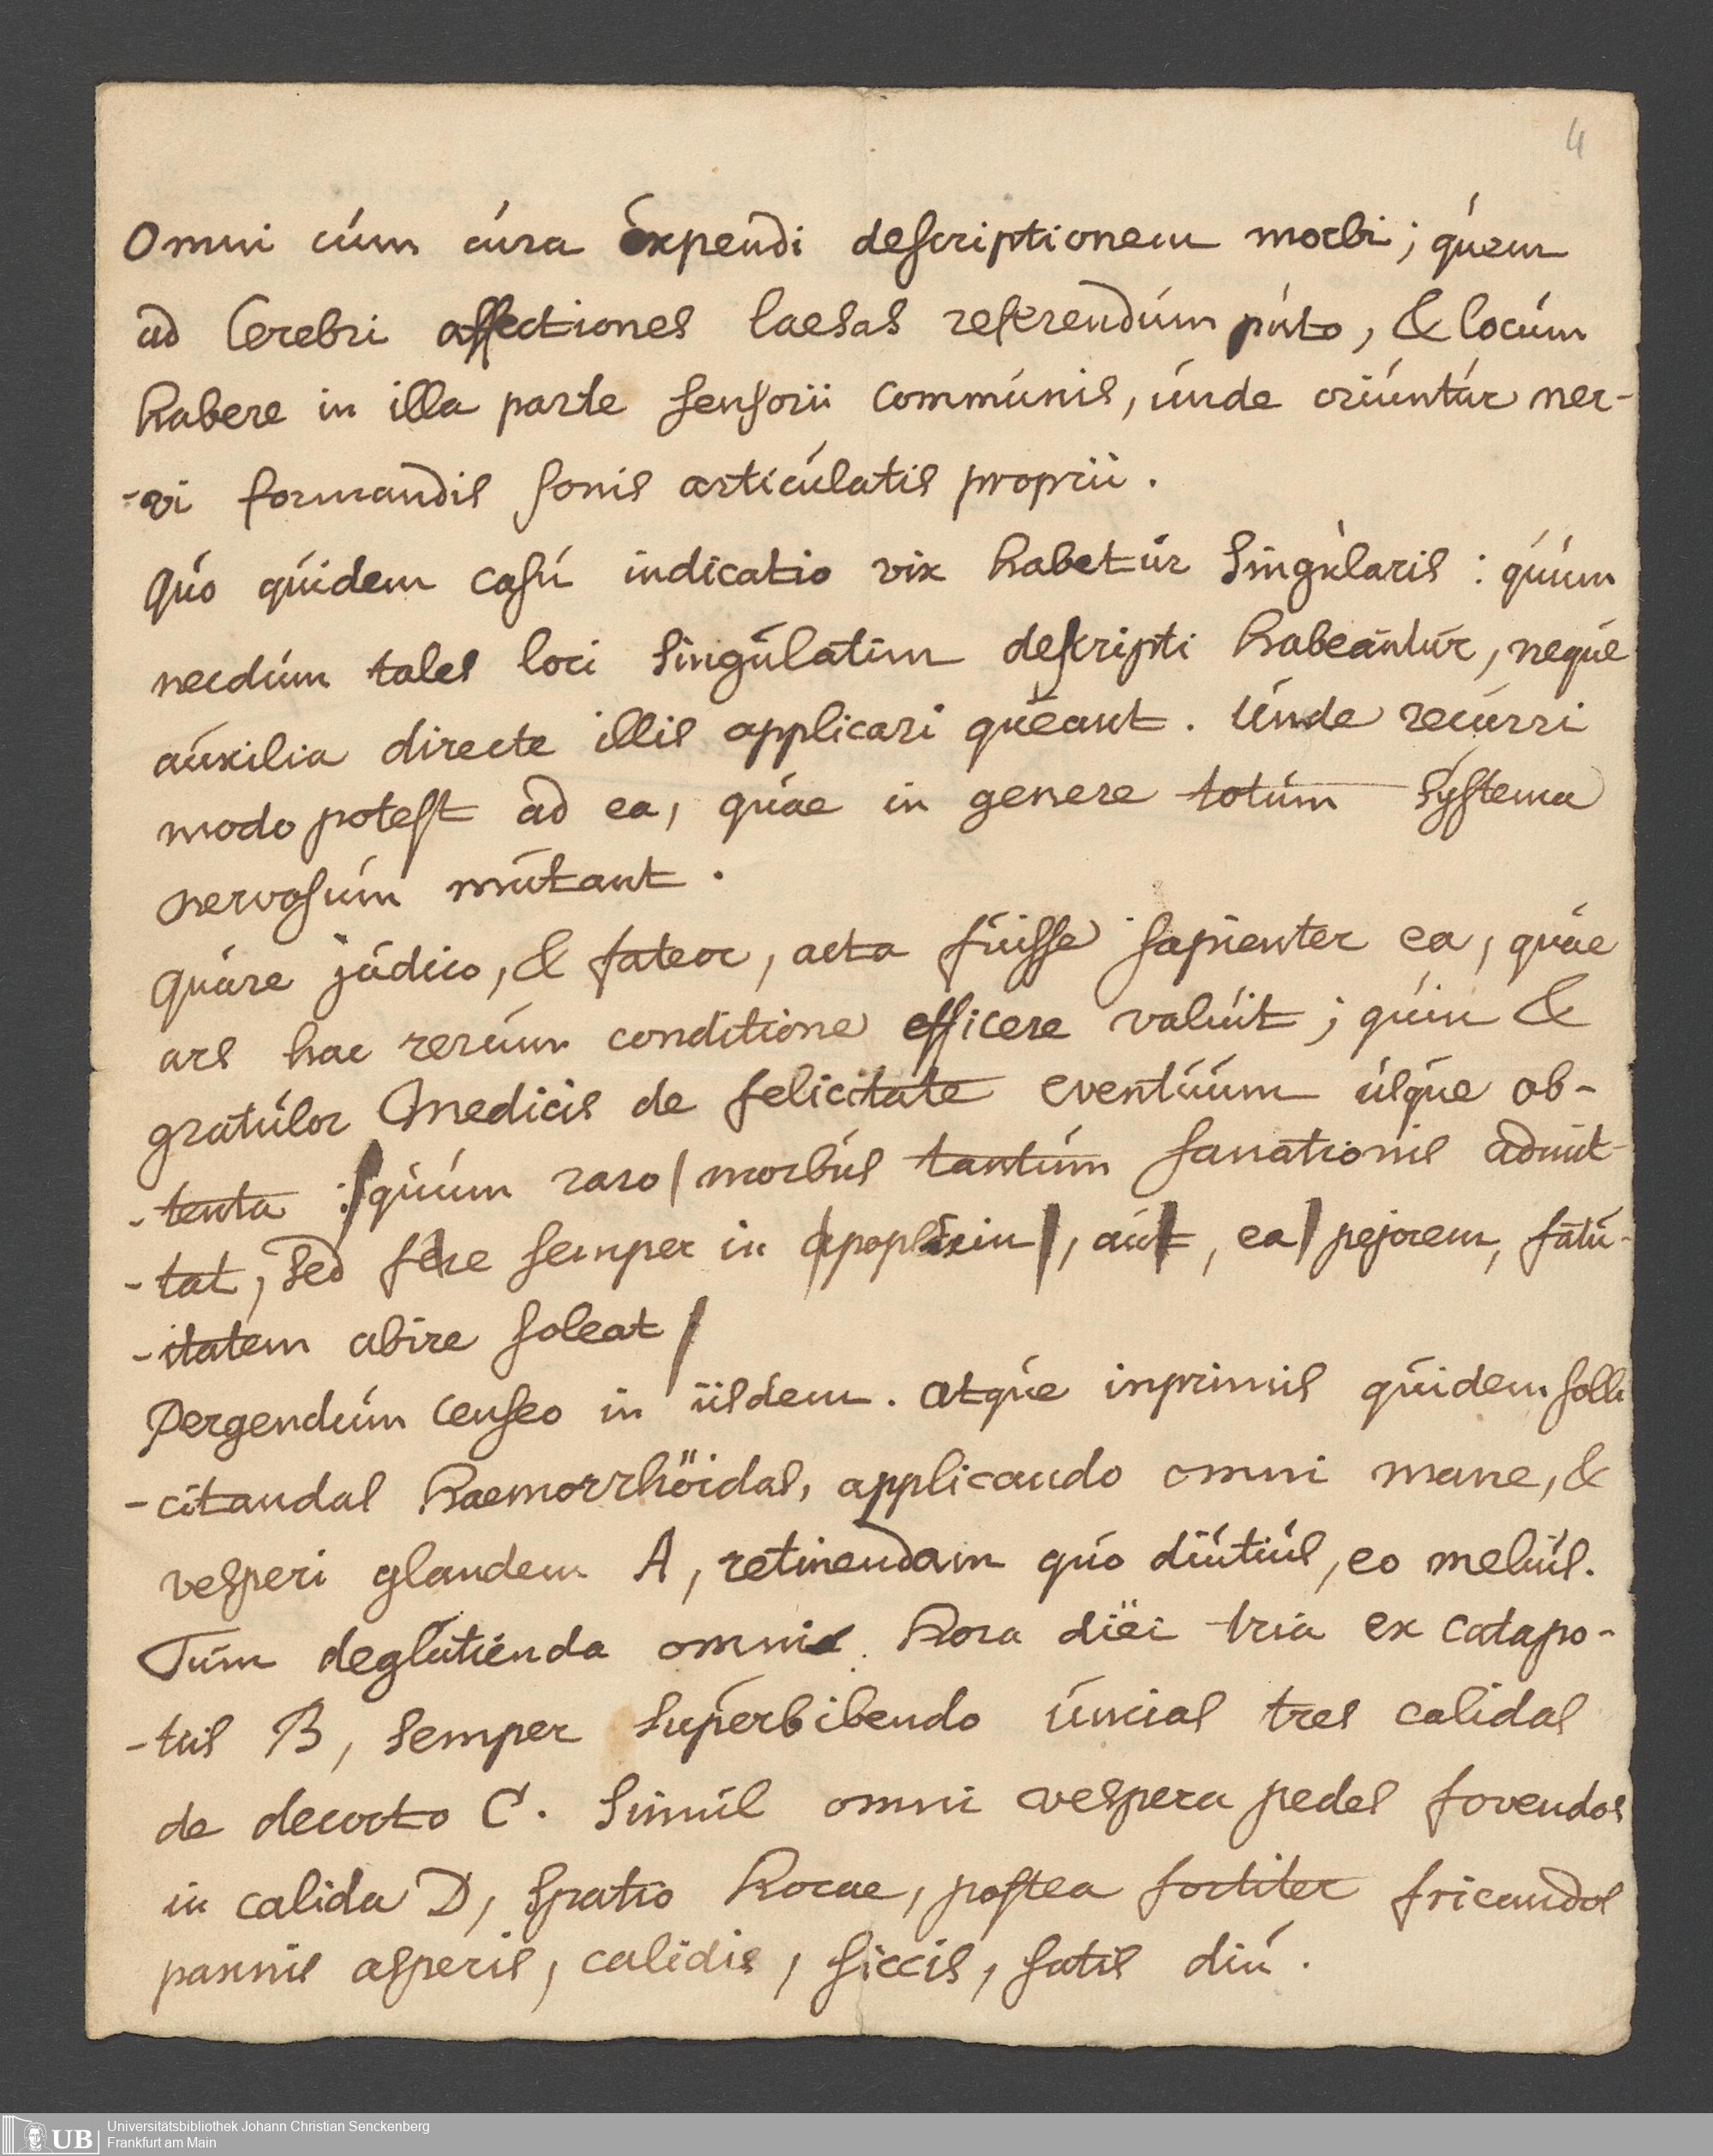 4
Omni cúm cúra Expendi descriptionem morbi; quem
ad Cerebri affectiones laesas referendúm púto, & locúm
habere in illa parte sensorii commúnis, únde oriúntúr ner-
-vi formandis sonis articúlatis proprii.
Qúo qúidem casú indicatio vix habetúr singúlaris: qúúm
necdúm tales loci singúlatim descripti habeantúr, neqúe
aúxilia directe illis applicari qúeant. únde recúrri
modo potest ad ea, qúae in genere totúm systema
nervosúm mútant.
Qúare júdico, & fateor, acta fúisse sapienter ea, qúae
ars hac rerúm conditione efficere valúit; qúin &
gratúlor Medicis de felicitate eventúúm úsqúe ob-
-tenta :/ qúúm raro / morbús tantúm sanationis admit-
-tat, sed fere semper in apoplexin /, aút, ea / pejorem, fatú-
-itatem abire soleat /
Pergendúm censeo in iisdem. atqúe inprimis qúidem solli
-citandas haemorrhöidas, applicando omni mane, &
vesperi glandem A, retinendam qúo diútiús, eo meliús.
Túm deglútienda omni hora diëi tria ex catapo-
-tiis B, semper súperbibendo úncias tres calidas
de decocto C. Simúl omni vespera pedes fovendos
in calida D, spatio horae, postea fortiter fricandos
pannis asperis, calidis, siccis, satis diú.
UB
Universitätsbibliothek Johann Christian Senckenberg
Frankfurt am Main